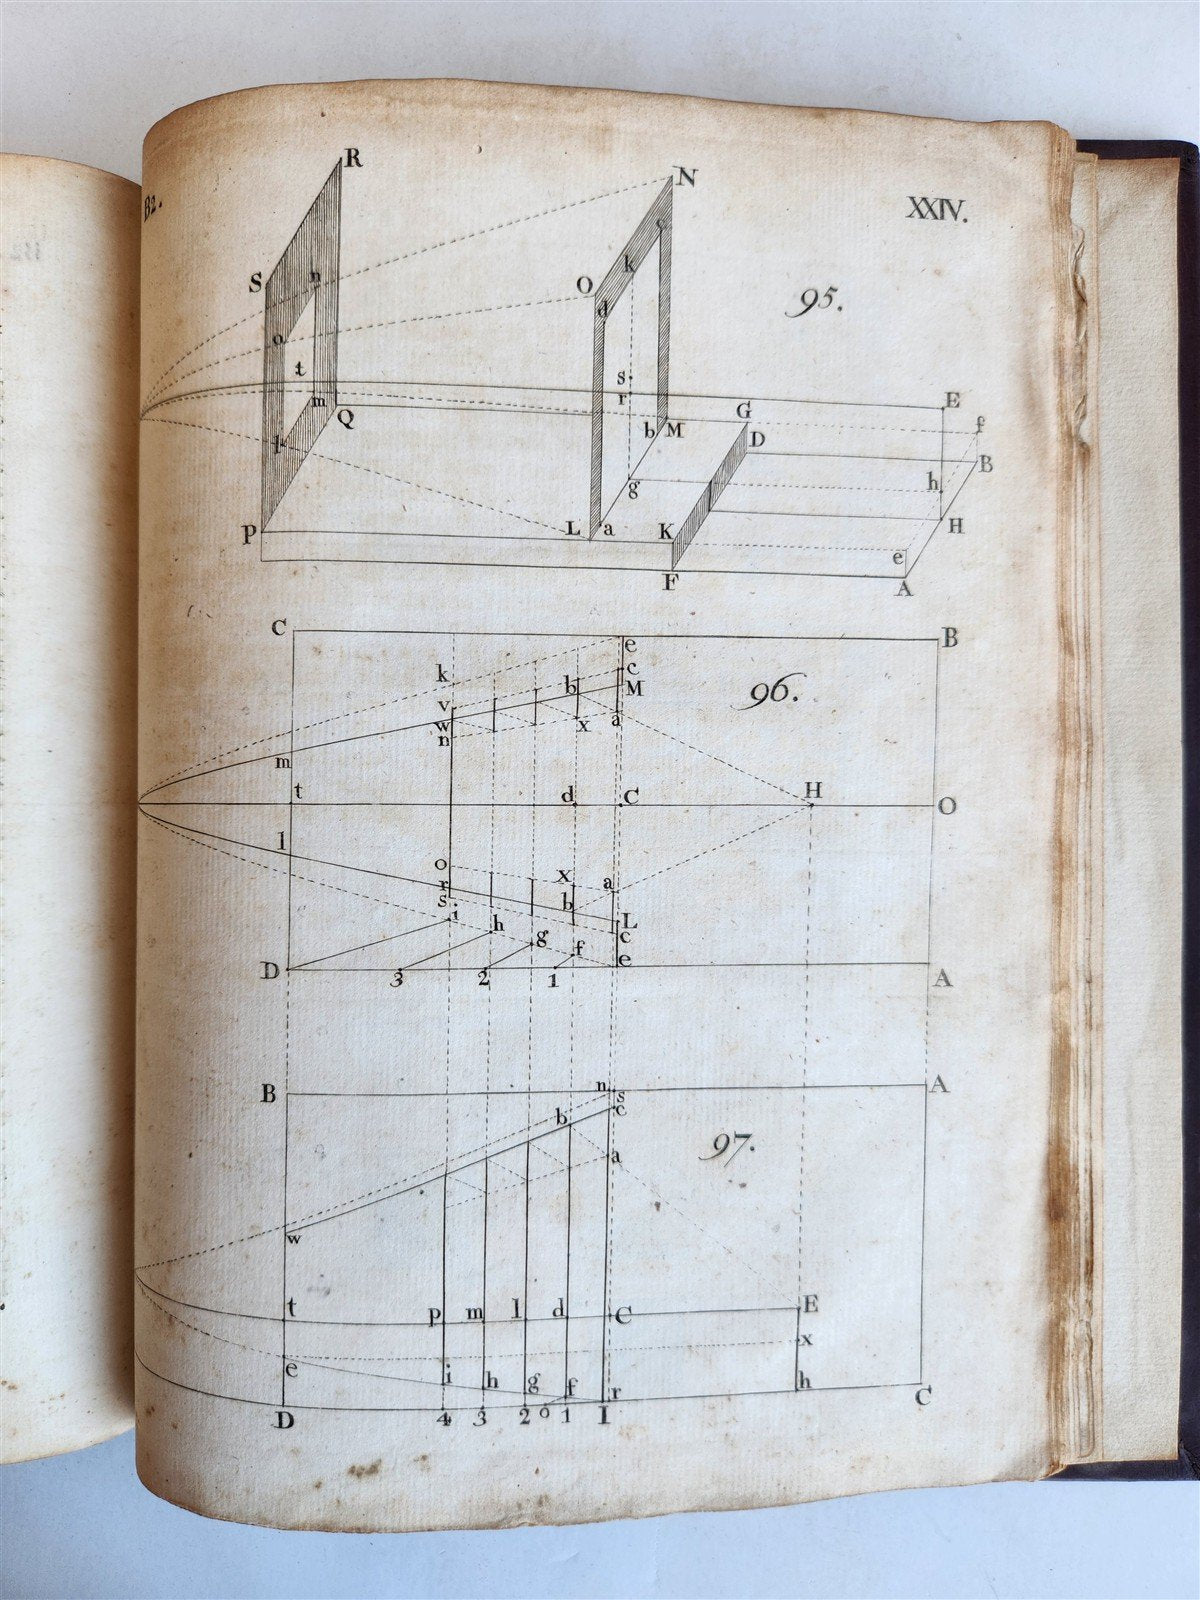 B2.
XXIV.
R
N
S
n
c
k
O
d
95.
o
t
s
r
E
m
Q
b
M
G
f
l
D
B
g
h
P
L
a
K
H
e
F
A
C
B
e
k
c
b
M
96.
v
w
x
a
n
m
t
d
C
H
O
l
o
x
a
r
b
s
i
L
h
c
g
f
e
D
3
2
1
A
B
n
A
s
c
b
97.
a
w
t
p
m
l
d
C
E
x
e
i
h
g
f
r
h
D
4
3
2
o
1
I
C